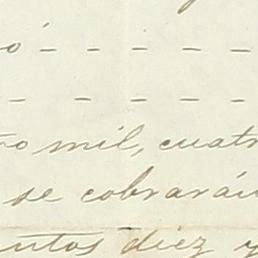 ó — — — — —
— — — — —
ro mil, cuatr
se cobrarán
entos diez y